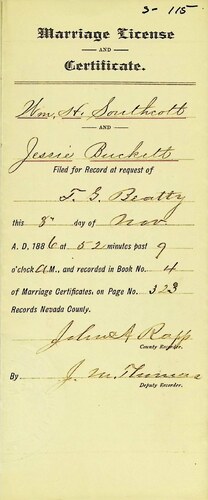 3-115
Marriage License
AND
Certificate.
Wm. H. Southcott
AND
Jessie Buckett
Filed for Record at request of
T. G. Beatty
this 8" day of Nov
A. D. 1886 at 52 minutes past 9
o'clock A.M., and recorded in Book No. 4
of Marriage Certificates, on Page No. 323
Records Nevada County.
John A Rapp
County Recorder.
By J. M. Thomas
Deputy Recorder.